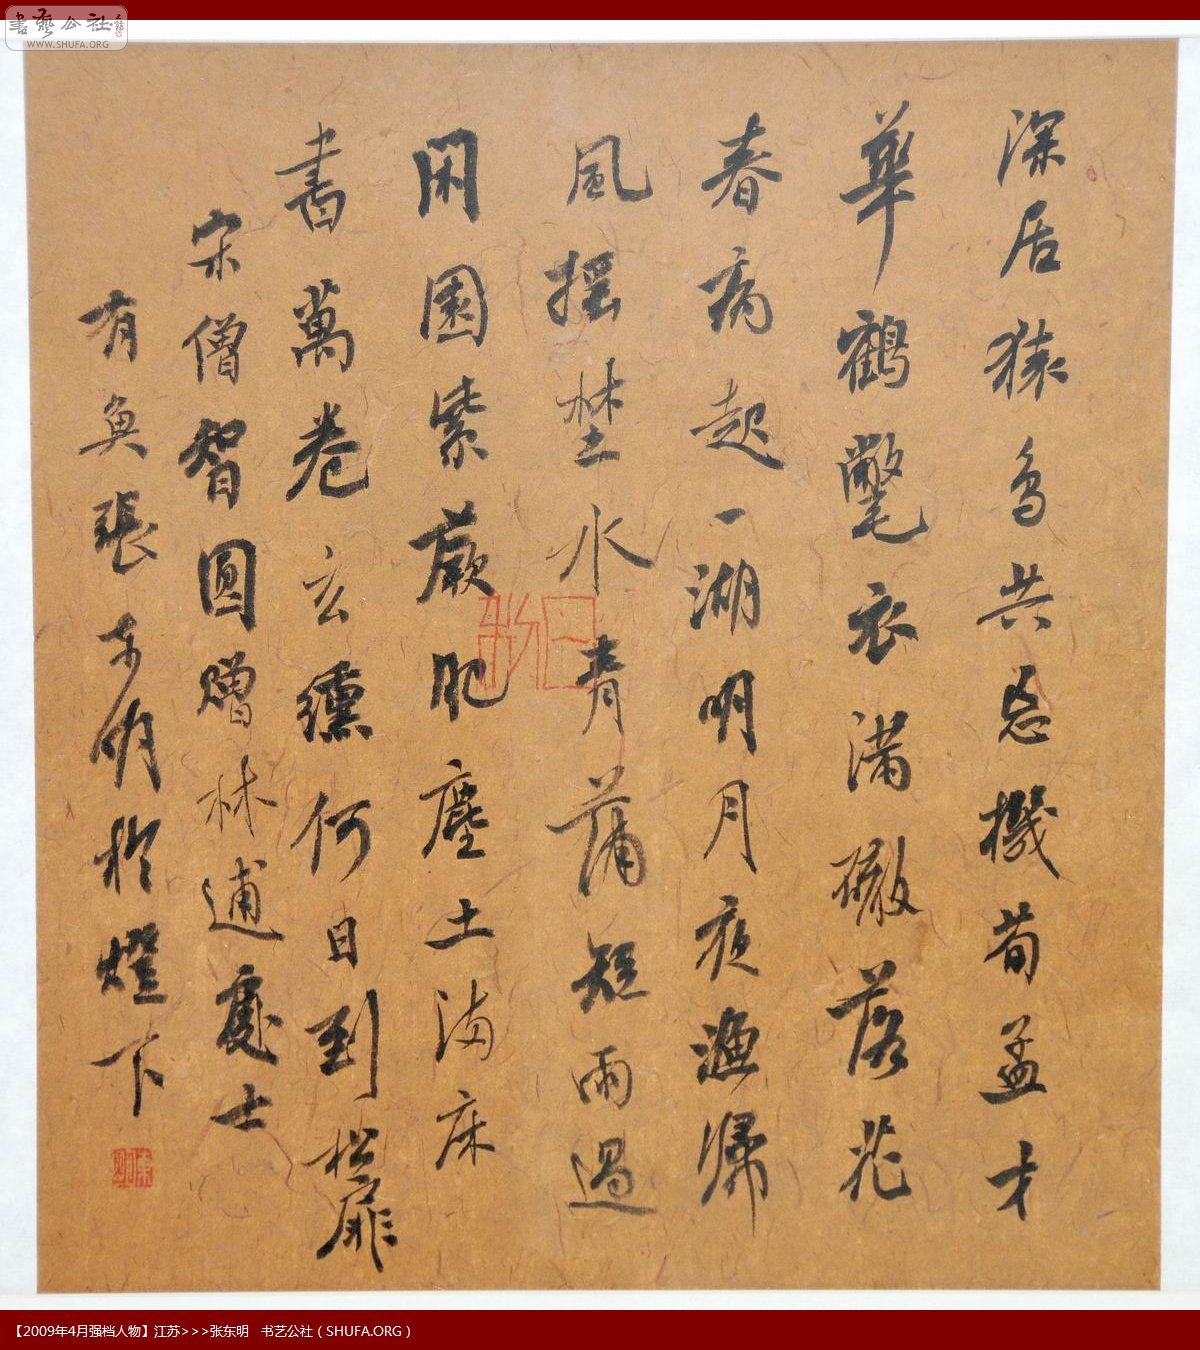 書藝公社
WWW.SHUFA.ORG
深居猿鳥共忘機荀孟才
華鶴氅衣滿砌落花
春病起一湖明月夜漁歸
風搖野水青蒲短雨過
閑園紫蕨肥塵土滿床
書萬卷玄纁何日到松扉
宋僧智圓贈林逋處士
有奐張東明於燈下
【2009年4月强档人物】江苏>>>张东明 书艺公社（SHUFA.ORG）